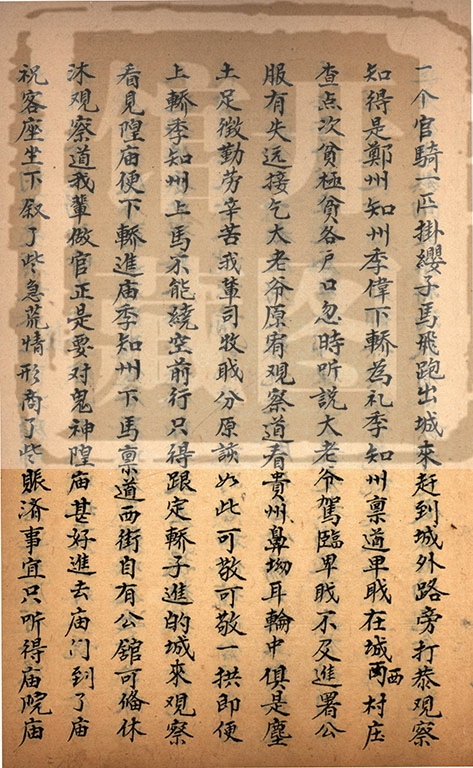 一个官騎一匹掛纓子馬飛跑出城來赶到城外路旁打恭觀察
知得是鄭州知州季偉下轎為礼季知州禀道卑戝在城西村庄
查点次貧極貧各户口忽時听説大老爷駕臨卑戝不及進署公
服有失远接乞大老爷原宥观察道看貴州鼻坳耳輪中俱是塵
土足徴勤劳辛苦我輩司牧戝分原該如此可敬可敬一拱即便
上轎季知州上馬不能繞空前行只得跟定轎子進的城來观察
看見隍庙便下轎進庙季知州下馬禀道西街自有公舘可俻休
沐观察道我輩做官正是要对鬼神隍庙甚好進去庙门到了庙
祝客座坐下叙了些急荒情形商了些賑済事宜只听得庙院庙